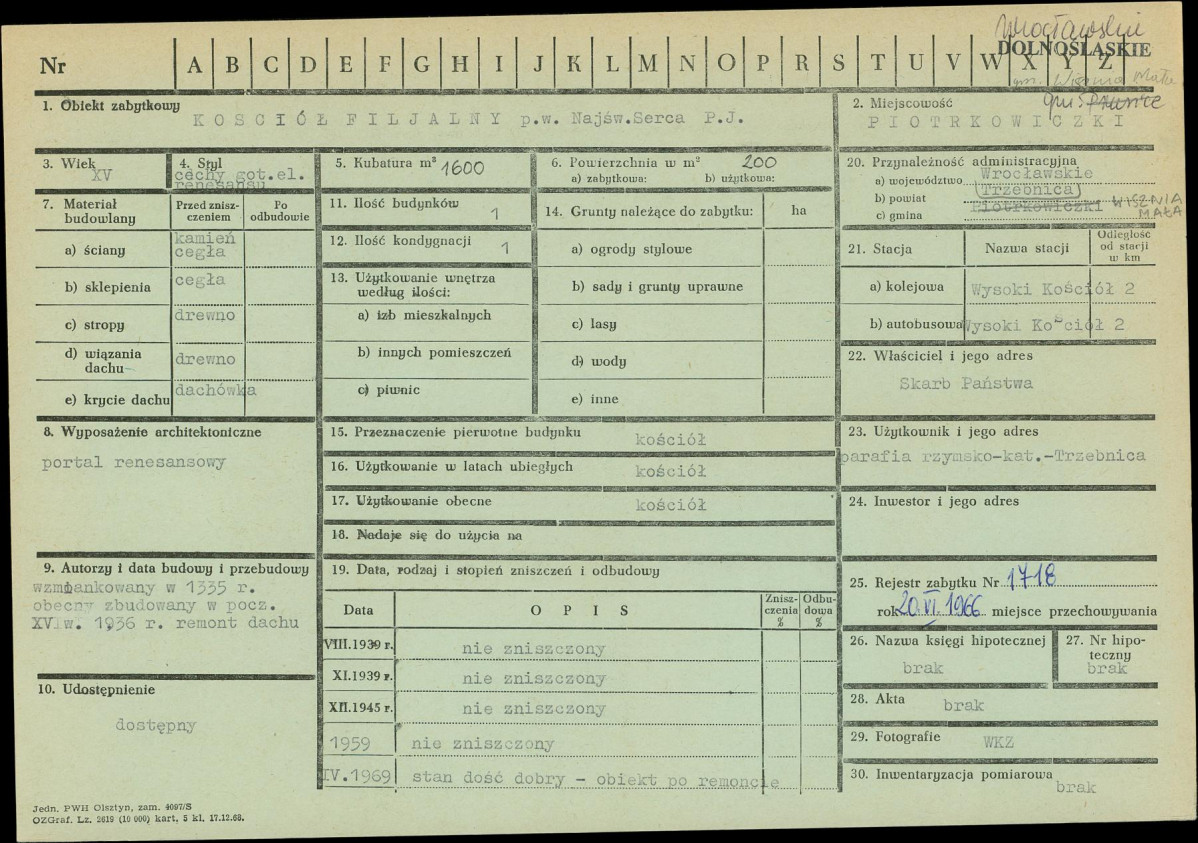 Wrocławskie
DOLNOŚLĄSKIE
Nr A B C D E F G H I J K L M N O P R S T U V W X Y Z
gm. Wisznia Mała
gm. Prusice
1. Obiekt zabytkowy
KOSCIÓŁ FILJALNY p.w. Najśw.Serca P.J.
2. Miejscowość
PIOTRKOWICZKI
3. Wiek
XV
4. Styl
cechy got.el.
renesansu
5. Kubatura m³ 1600
6. Powierzchnia w m² 200
a) zabytkowa: b) użytkowa:
20. Przynależność administracyjna
a) województwo Wrocławskie
b) powiat (Trzebnica)
c) gmina Piotrkowiczki WISZNIA MAŁA
7. Materiał budowlany
Przed zniszczeniem
Po odbudowie
a) ściany kamień cegła
b) sklepienia cegła
c) stropy drewno
d) wiązania dachu drewno
e) krycie dachu dachówka
11. Ilość budynków 1
12. Ilość kondygnacji 1
13. Użytkowanie wnętrza
według ilości:
a) izb mieszkalnych
b) innych pomieszczeń
c) piwnic
14. Grunty należące do zabytku: ha
a) ogrody stylowe
b) sady i grunty uprawne
c) lasy
d) wody
e) inne
21. Stacja Nazwa stacji Odległość od stacji w km
a) kolejowa Wysoki Kościół 2
b) autobusowa Wysoki Kościół 2
22. Właściciel i jego adres
Skarb Państwa
8. Wyposażenie architektoniczne
portal renesansowy
15. Przeznaczenie pierwotne budynku kościół
16. Użytkowanie w latach ubiegłych kościół
17. Użytkowanie obecne kościół
18. Nadaje się do użycia na
23. Użytkownik i jego adres
parafia rzymsko-kat.-Trzebnica
24. Inwestor i jego adres
9. Autorzy i data budowy i przebudowy
wzmiankowany w 1335 r.
obecny zbudowany w pocz.
XVI w. 1936 r. remont dachu
10. Udostępnienie
dostępny
19. Data, rodzaj i stopień zniszczeń i odbudowy
Data OPIS Zniszczenia % Odbudowa %
VIII.1939 r. nie zniszczony
XI.1939 r. nie zniszczony
XII.1945 r. nie zniszczony
1959 nie zniszczony
IV.1969 stan dość dobry - obiekt po remoncie
25. Rejestr zabytku Nr 1718
rok 20.VI.1966 miejsce przechowywania
26. Nazwa księgi hipotecznej
brak
27. Nr hipoteczny
brak
28. Akta brak
29. Fotografie WKZ
30. Inwentaryzacja pomiarowa
brak
Jedn. PWH Olsztyn, zam. 4097/S
OZGraf. Lz. 2619 (10 000) kart. 5 kl. 17.12.68.